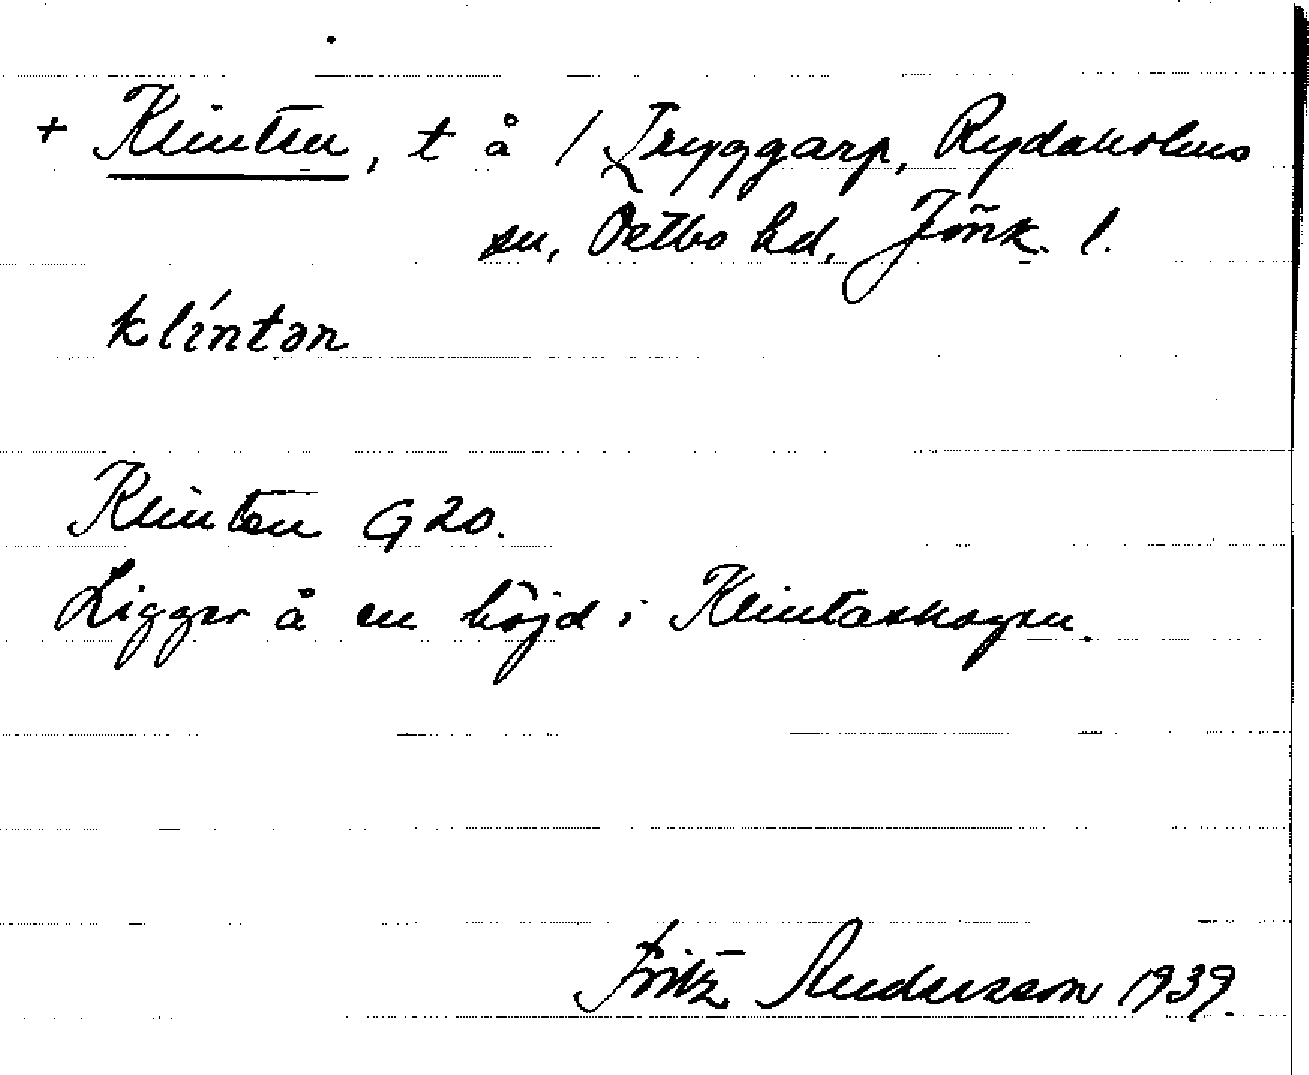 + Klinten, t å / Tryggarp, Rydaholms
sn, Östbo hd, Jönk. l.
klíntən
Klinten G 20.
Ligger å en höjd i Klintaskogen.
Fritz Andersson 1939.